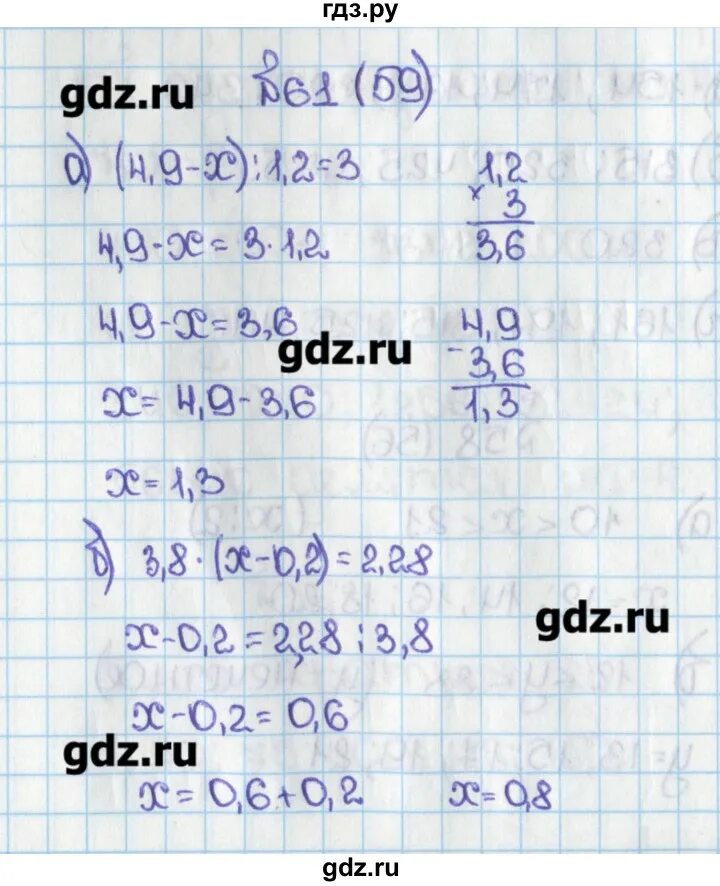 гдз.ру
gdz.ru
№61 (59)
а) (4,9-х):1,2=3
1,2
× 3
3,6
4,9-х=3·1,2
4,9-х=3,6
gdz.ru
4,9
- 3,6
1,3
х=4,9-3,6
х=1,3
б) 3,8·(х-0,2)=2,28
gdz.ru
х-0,2=2,28:3,8
х-0,2=0,6
gdz.ru
х=0,6+0,2 х=0,8
gdz.ru